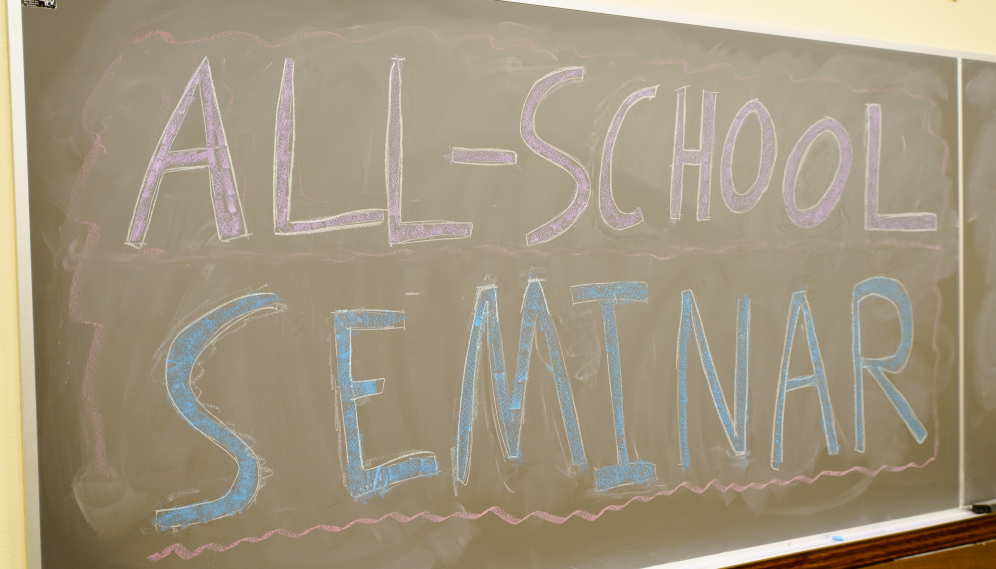 ALL-SCHOOL
SEMINAR